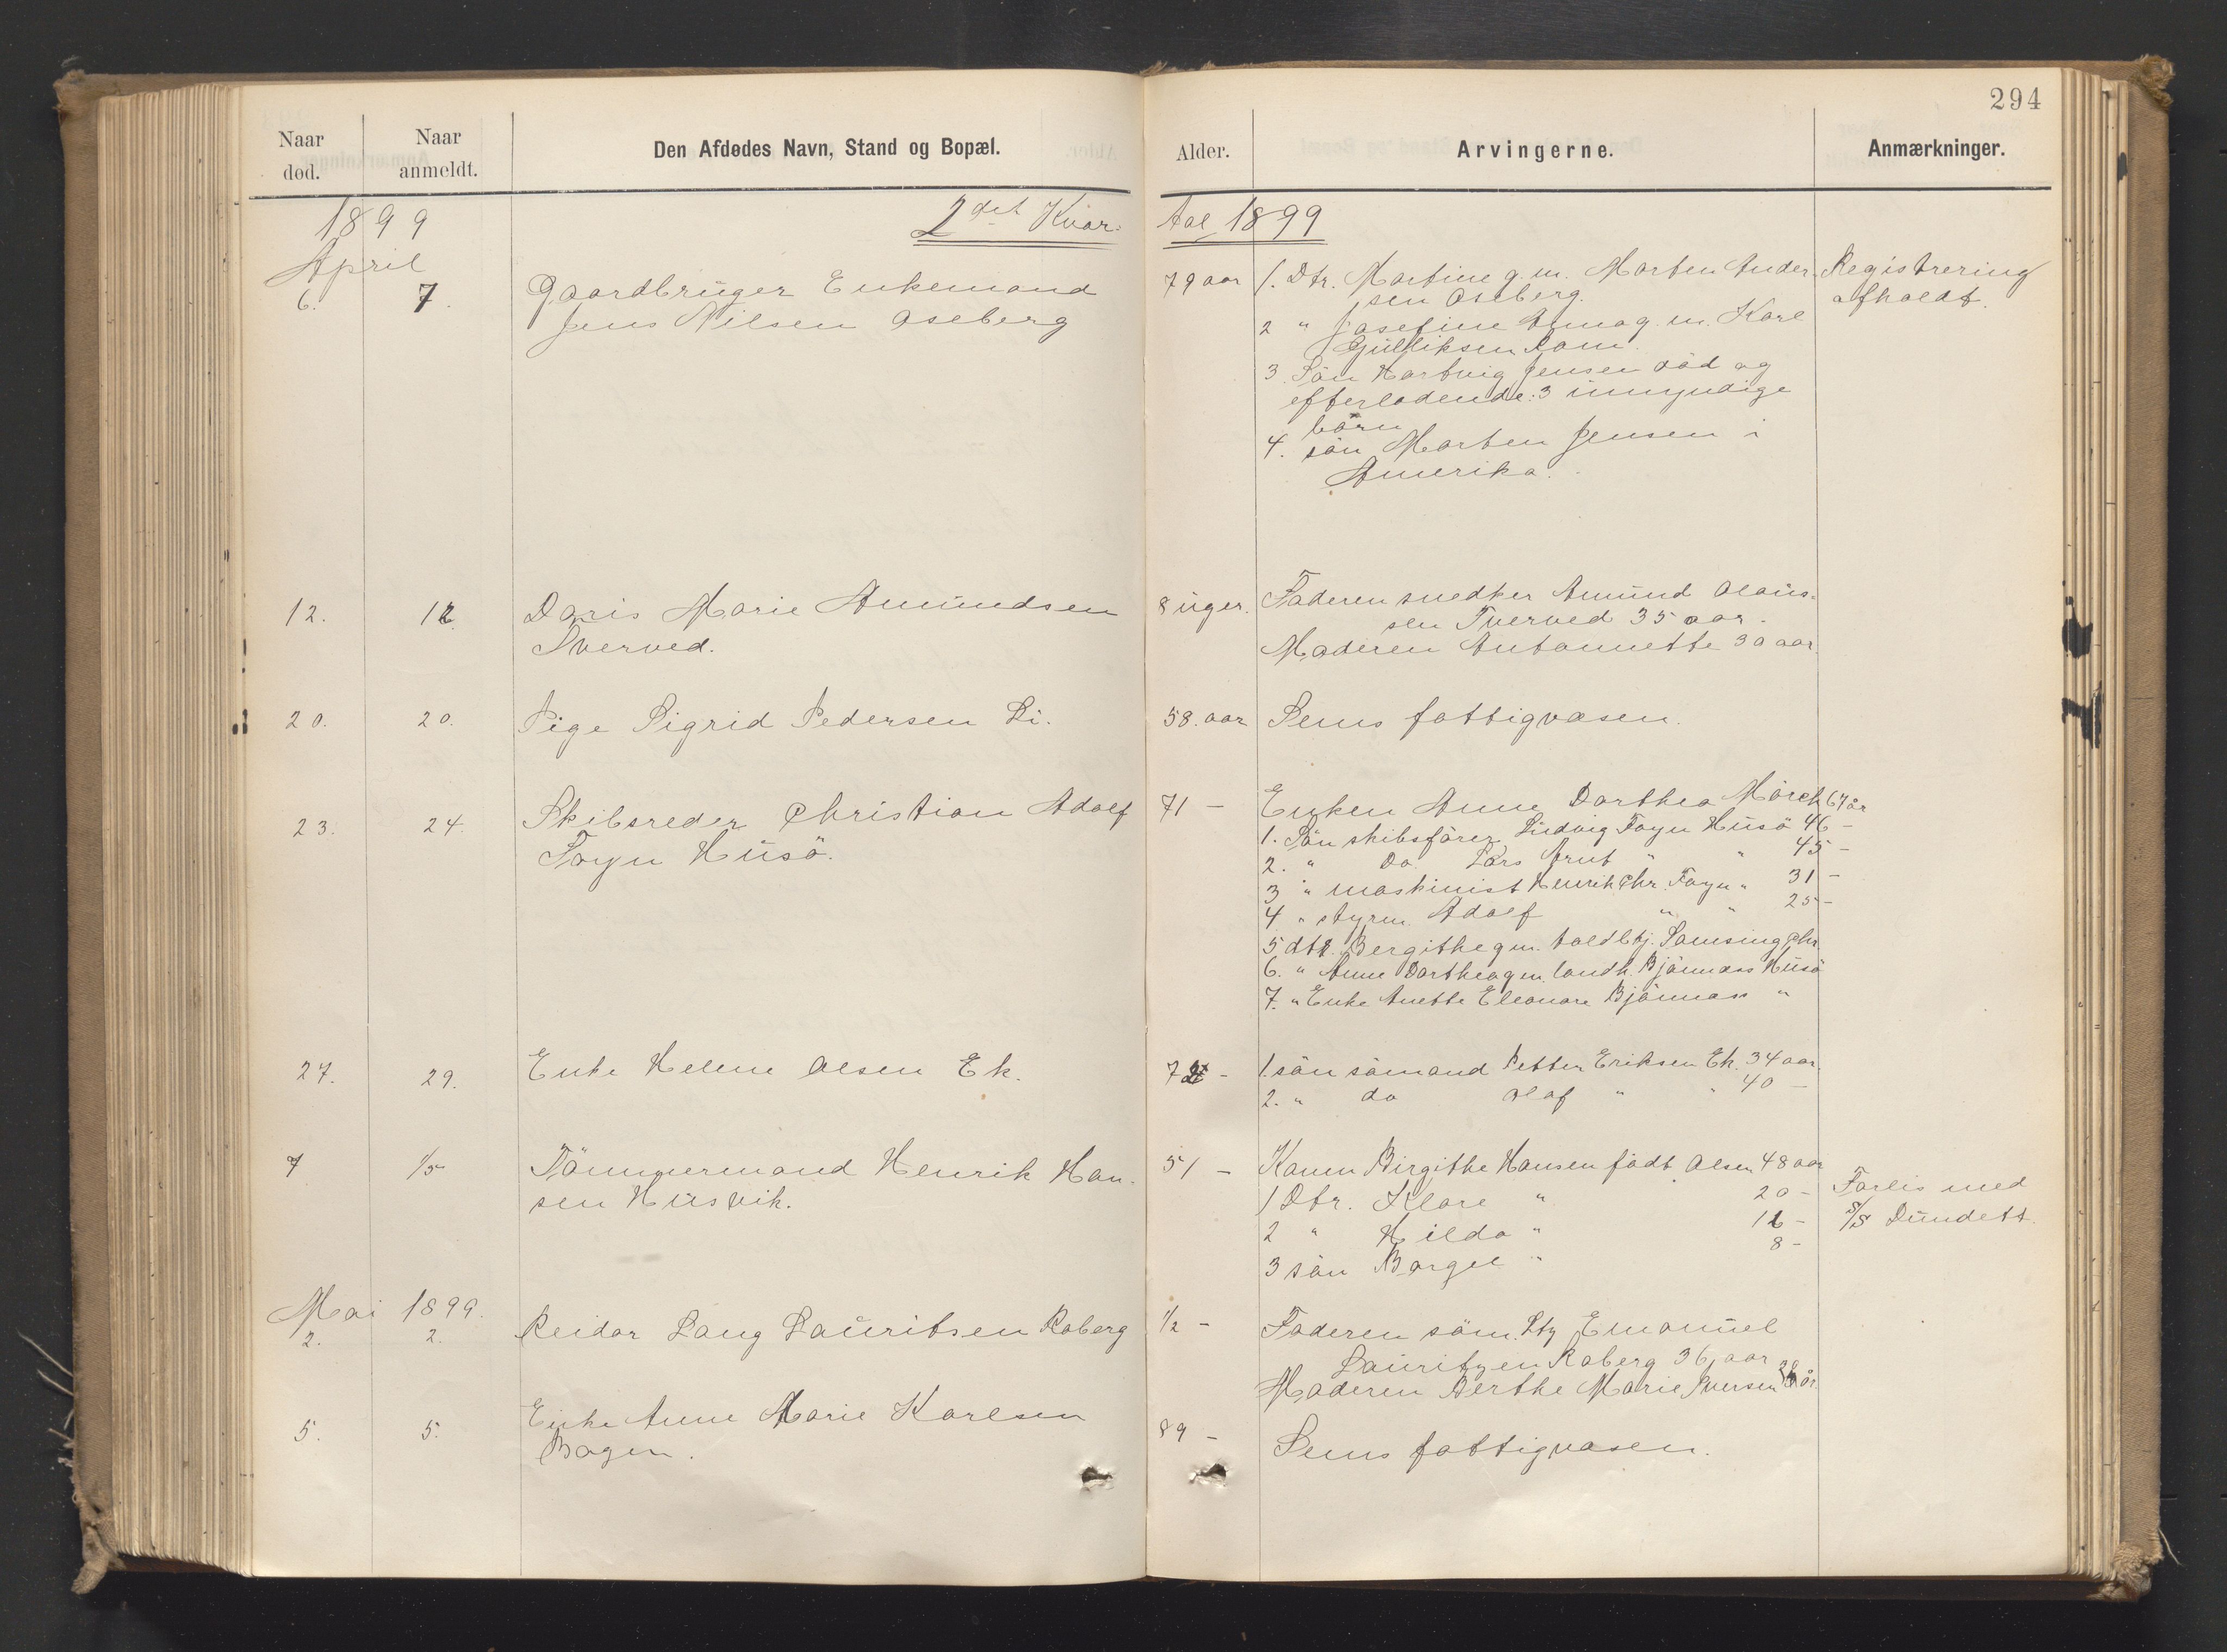 294
Naar død.
Naar anmeldt.
Den Afdødes Navn, Stand og Bopæl.
Alder.
Arvingerne.
Anmærkninger.
1899
2det Kvar-
tal 1899
April
6. 7. Gaardbrüger Enkemand
Jens Nilsen Oseberg
79 aar
1. Dtr. Martine g.m. Morten Ander-
sen Oseberg.
2 " Josefine Anna g.m. Karl
Gülliksen Rom.
3. Sön Hartvig Jensen död og
efterladende: 3 ümyndige
börn
4. sön Morten Jensen i
Amerika.
Registrering
afholdt.
12. 12 Doris Marie Amündsen
Tverved.
8 üger.
Faderen snedker Amünd Olaüs-
sen Tverved 35 aar.
Moderen Antonnette 30 aar.
20. 20. Pige Sigrid Pedersen Li.
58. aar
Sems fattigvæsen.
23. 24. Skibsreder Christian Adolf
Foyn Hüsö.
71 -
Enken Anne Dorthea Mörch 67 år
1. Sön skibsförer Lüdvig Foyn Hüsö 46 -
2. " Do Lars Arnt " " 45 -
3 " maskinist Henrik Chr. Foyn " 31 -
4 " styrm. Adolf " " 25 -
5 dtr. Bergithe gm. toldbtj. Samsing Chr
6. " Anne Dorthea gm. landh. Bjönnæss Hüsö
7. " Enke Anette Eleonore Bjönnæss "
27. 29. Enke Helene Olsen Ek.
1. sön sömand Petter Eriksen Ek. 34 aar.
2. " do Olaf " " 40 -
7 1/5 Tömmermand Henrik Han-
sen Hüsvik.
51 -
Konen Birgithe Hansen födt Olsen 48 aar
1 Dtr. Klara " 20 -
2 " Hilda "
3 sön Borgel " 8 -
Forlis med
S/S Dündett.
Mai 1899.
2. 2. Reidar Lang Laüritsen Roberg
1/2 -
Faderen söm. Ltz Emanüel
Laüritzen Roberg 36 aar
Moderen Berthe Marie Iversen år
5. 5. Enke Anne Marie Karlsen
Bogen.
89 -
Sems fattigvæsen.